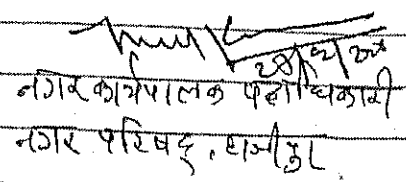 नगर कार्यपालक पदाधिकारी
नगर परिषद्, हाजीपुर